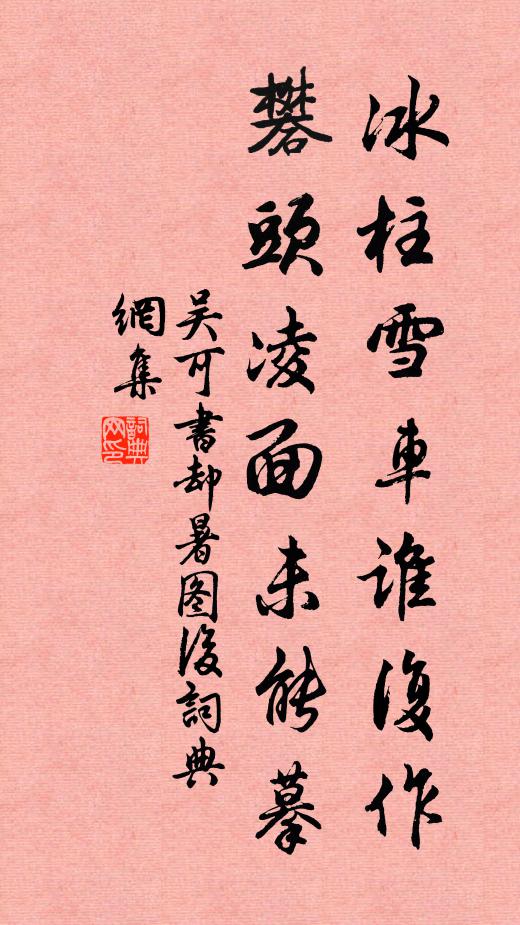 冰柱雪車誰復作
礬頭凌面未能摹
吴可書却暑图後詞典
網集
詞典
网印